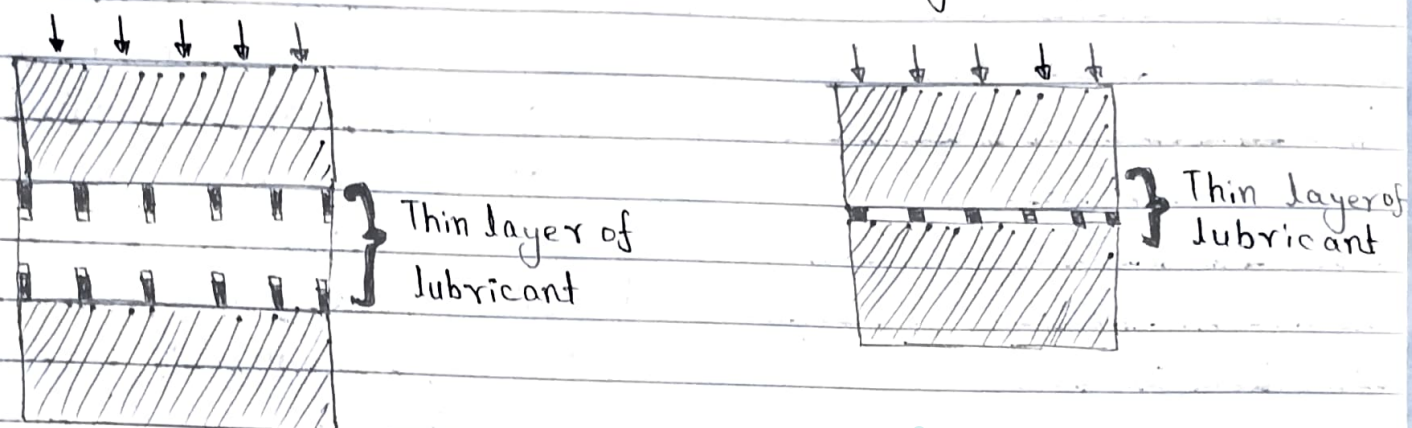 Thin layer of
lubricant
Thin layer of
lubricant